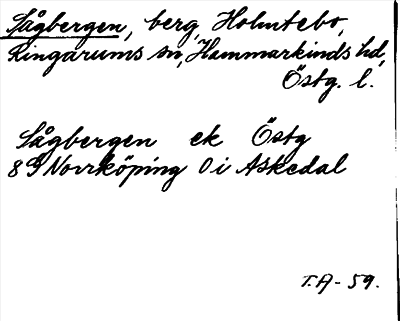 Sågbergen, berg, Holmtebo,
Ringarums sn, Hammarkinds hd,
Östg. l.
Sågbergen ek Östg
8 G Norrköping O i Askedal
T.A - 59.